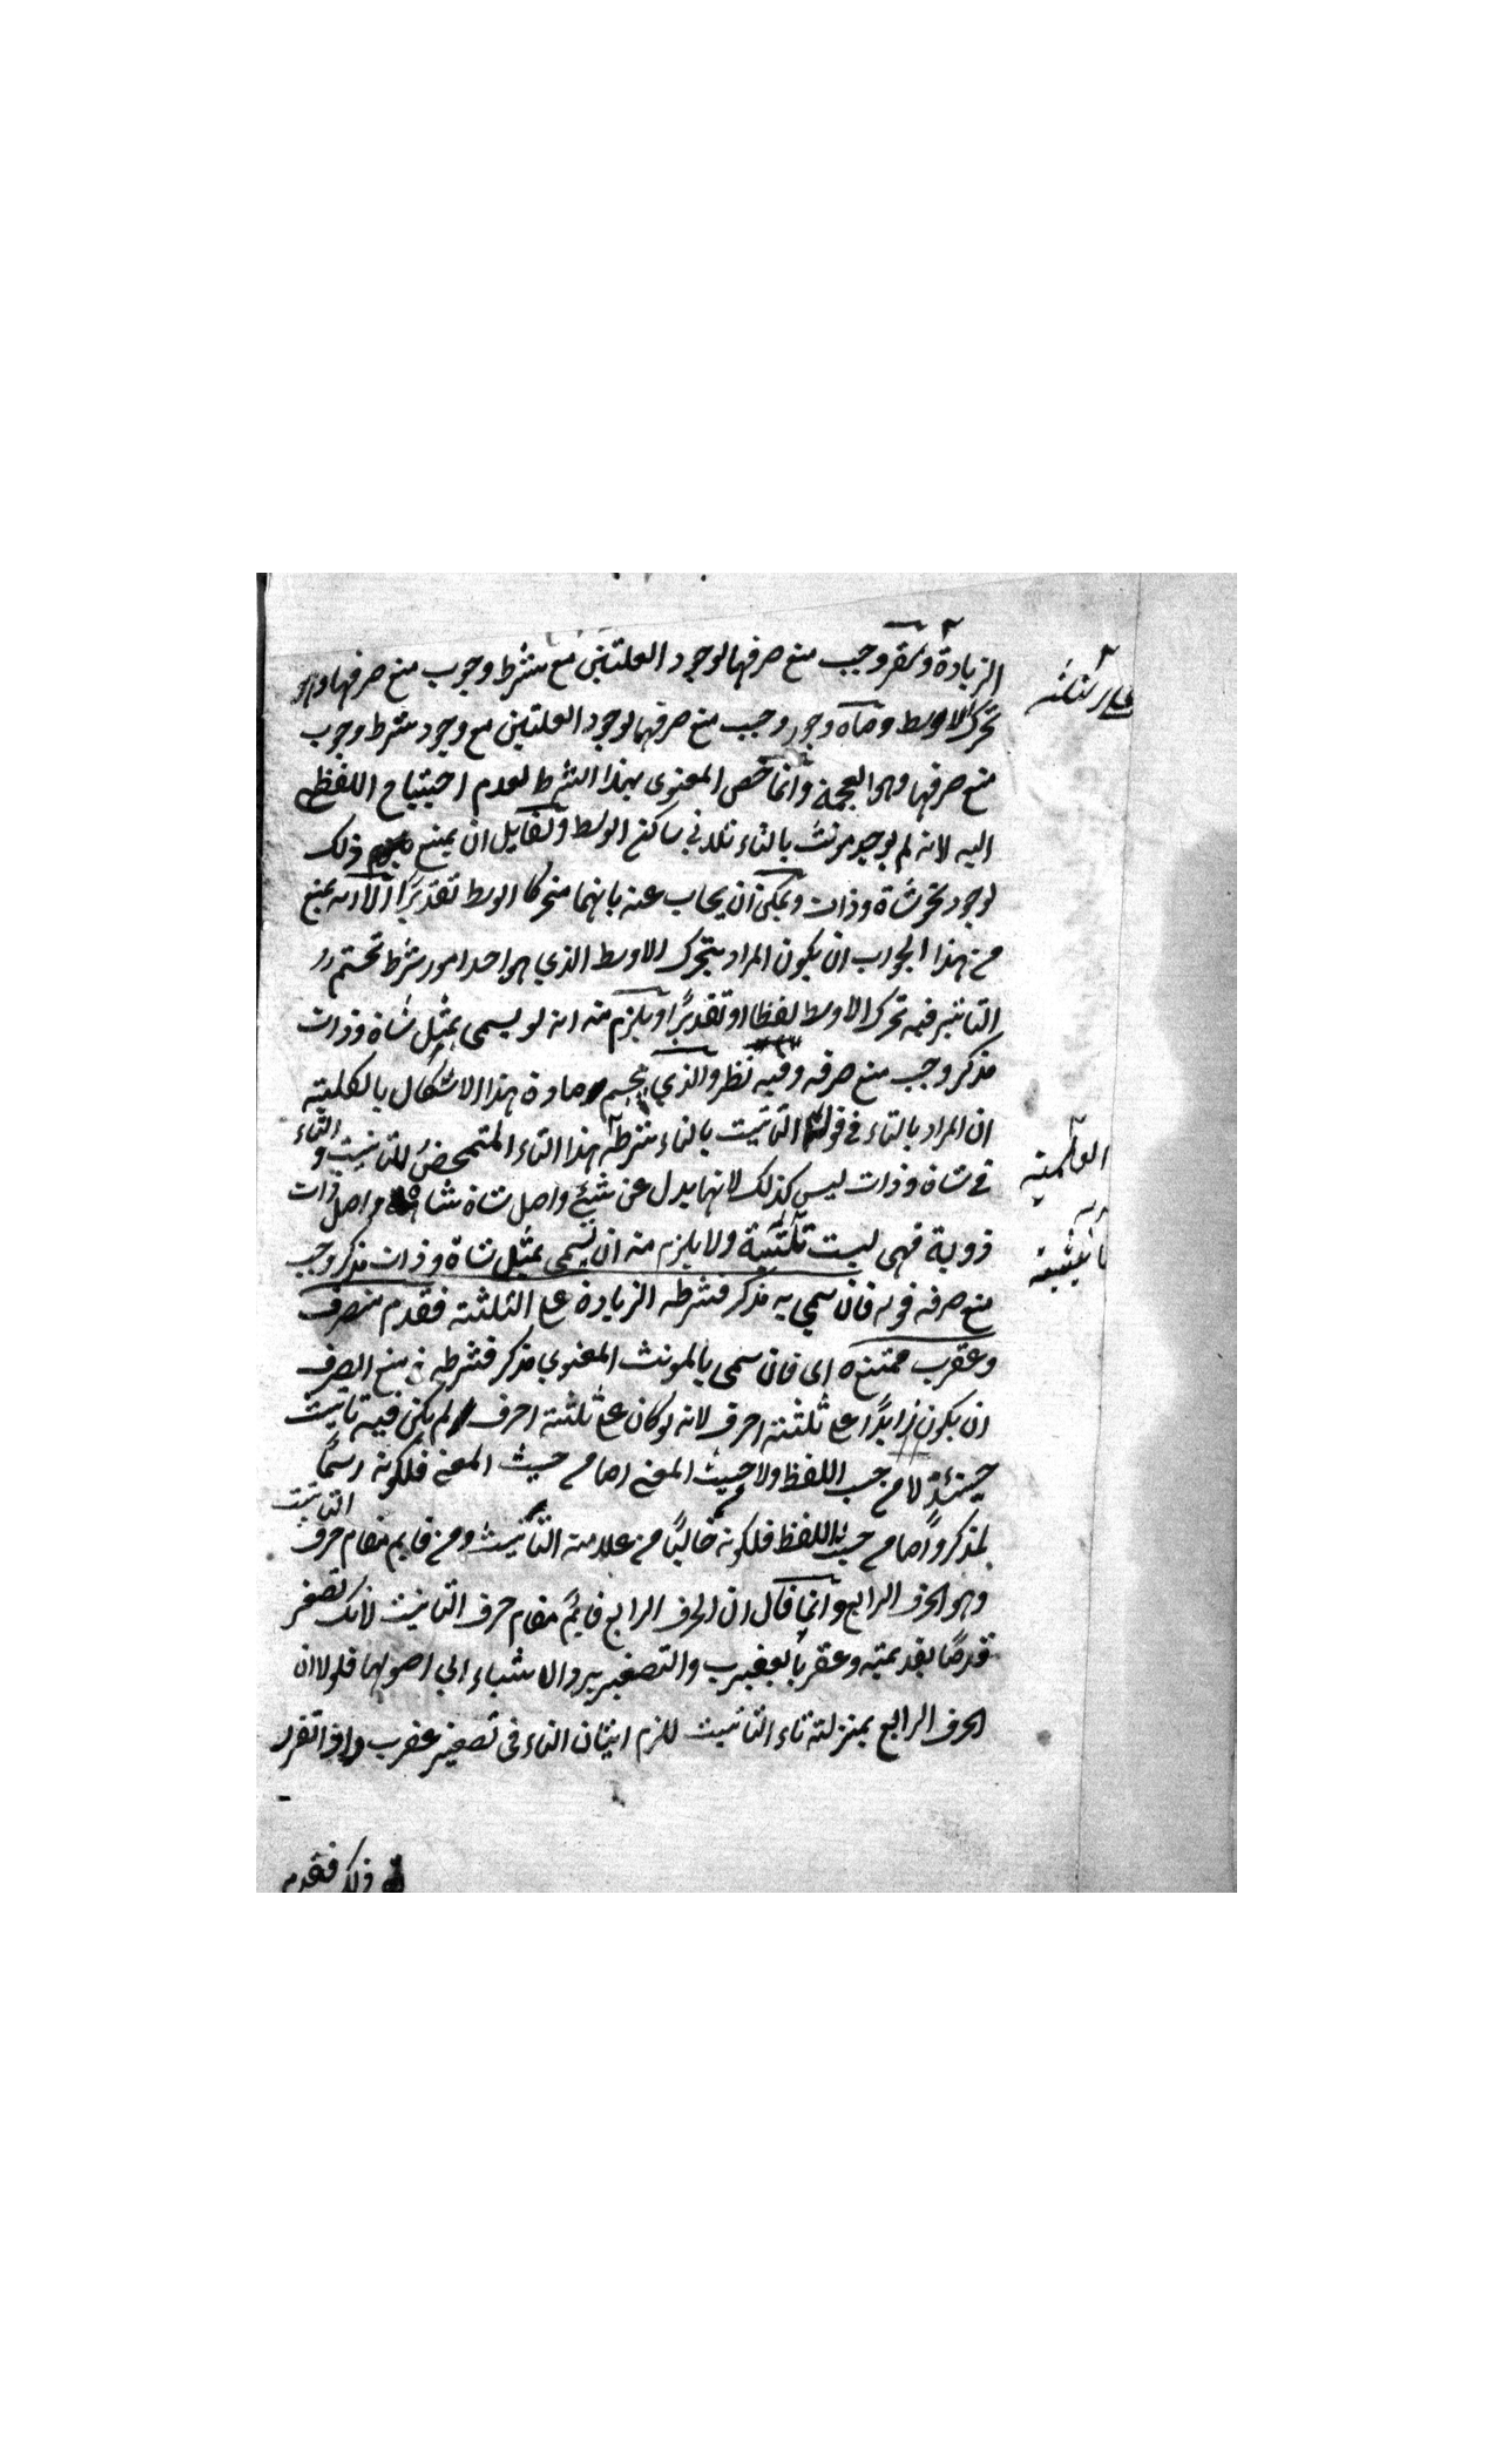 الزيادة وسقر وجب منع صرفها لوجود العلتين مع شرط وجوب منع صرفها وهو
على الثلثة
تحرك الاوسط وماه وجور وجب منع صرفهما لوجود العلتين مع وجود شرط وجوب
منع صرفها وهو العجمة وانما خص المعنوى بهذا الشرط لعدم احتياج اللفظى
اليه لانه لم يوجد مونث بالتاء ثلاثى ساكن الوسط ولقايل ان يمنع ذلك
لوجود نحو شاة وذات ويمكن ان يجاب عنه بانهما متحركا الوسط تقديرًا الا انه يمنع
من هذا الجواب ان يكون المراد بتحرك الاوسط الذي هو احد امور شرط تحتم
التاثير فيه تحرك الاوسط لفظا او تقديرًا ويلزم منه انه لو يسمى بمثل شاة وذات
مذكر وجب منع صرفه وفيه نظر والذي يحسم مادة هذا الاشكال بالكلية
ان المراد بالتاء فى قوله التانيث بالتاء شرطه هذا التاء المتمحض للتانيث والتاء
العلمية
فى شاة وذات ليس كذلك لانها بدل عن شيئ واصل شاة شاهة واصل ذات
ذوية فهى ليست ولا يلزم منه ان يسمى بمثل شاة وذات مذكر وجب
تانيثية
منع صرفه قوله فان سمي به مذكر فشرطه الزيادة على الثلثة فقدم منصرف
وعقرب ممتنع اى فان سمى بالمونث المعنوي مذكر فشرطه فى منع الصرف
ان يكون زايدًا على ثلثة احرف لانه لو كان على ثلثة احرف لم يكن فيه تانيث
حينئذ لا من حيث اللفظ ولا حيث المعنى اما من حيث المعنى فلكونه اسمًا
لمذكر واما من حيث اللفظ فلكونه خاليًا من علامة التانيث ومن قايم مقام حرف التانيث
وهو الحرف الرابع وانما قال ان الحرف الرابع قايم مقام حرف التانيث لانك تصغر
قدمًا بقديمة وعقربا بعقيرب والتصغير يرد الاشياء الي اصولها فلولا ان
الحرف الرابع بمنزلة تاء التانيث للزم اتيان التاء فى تصغير عقرب واذا تقرر
ذلك فقدم